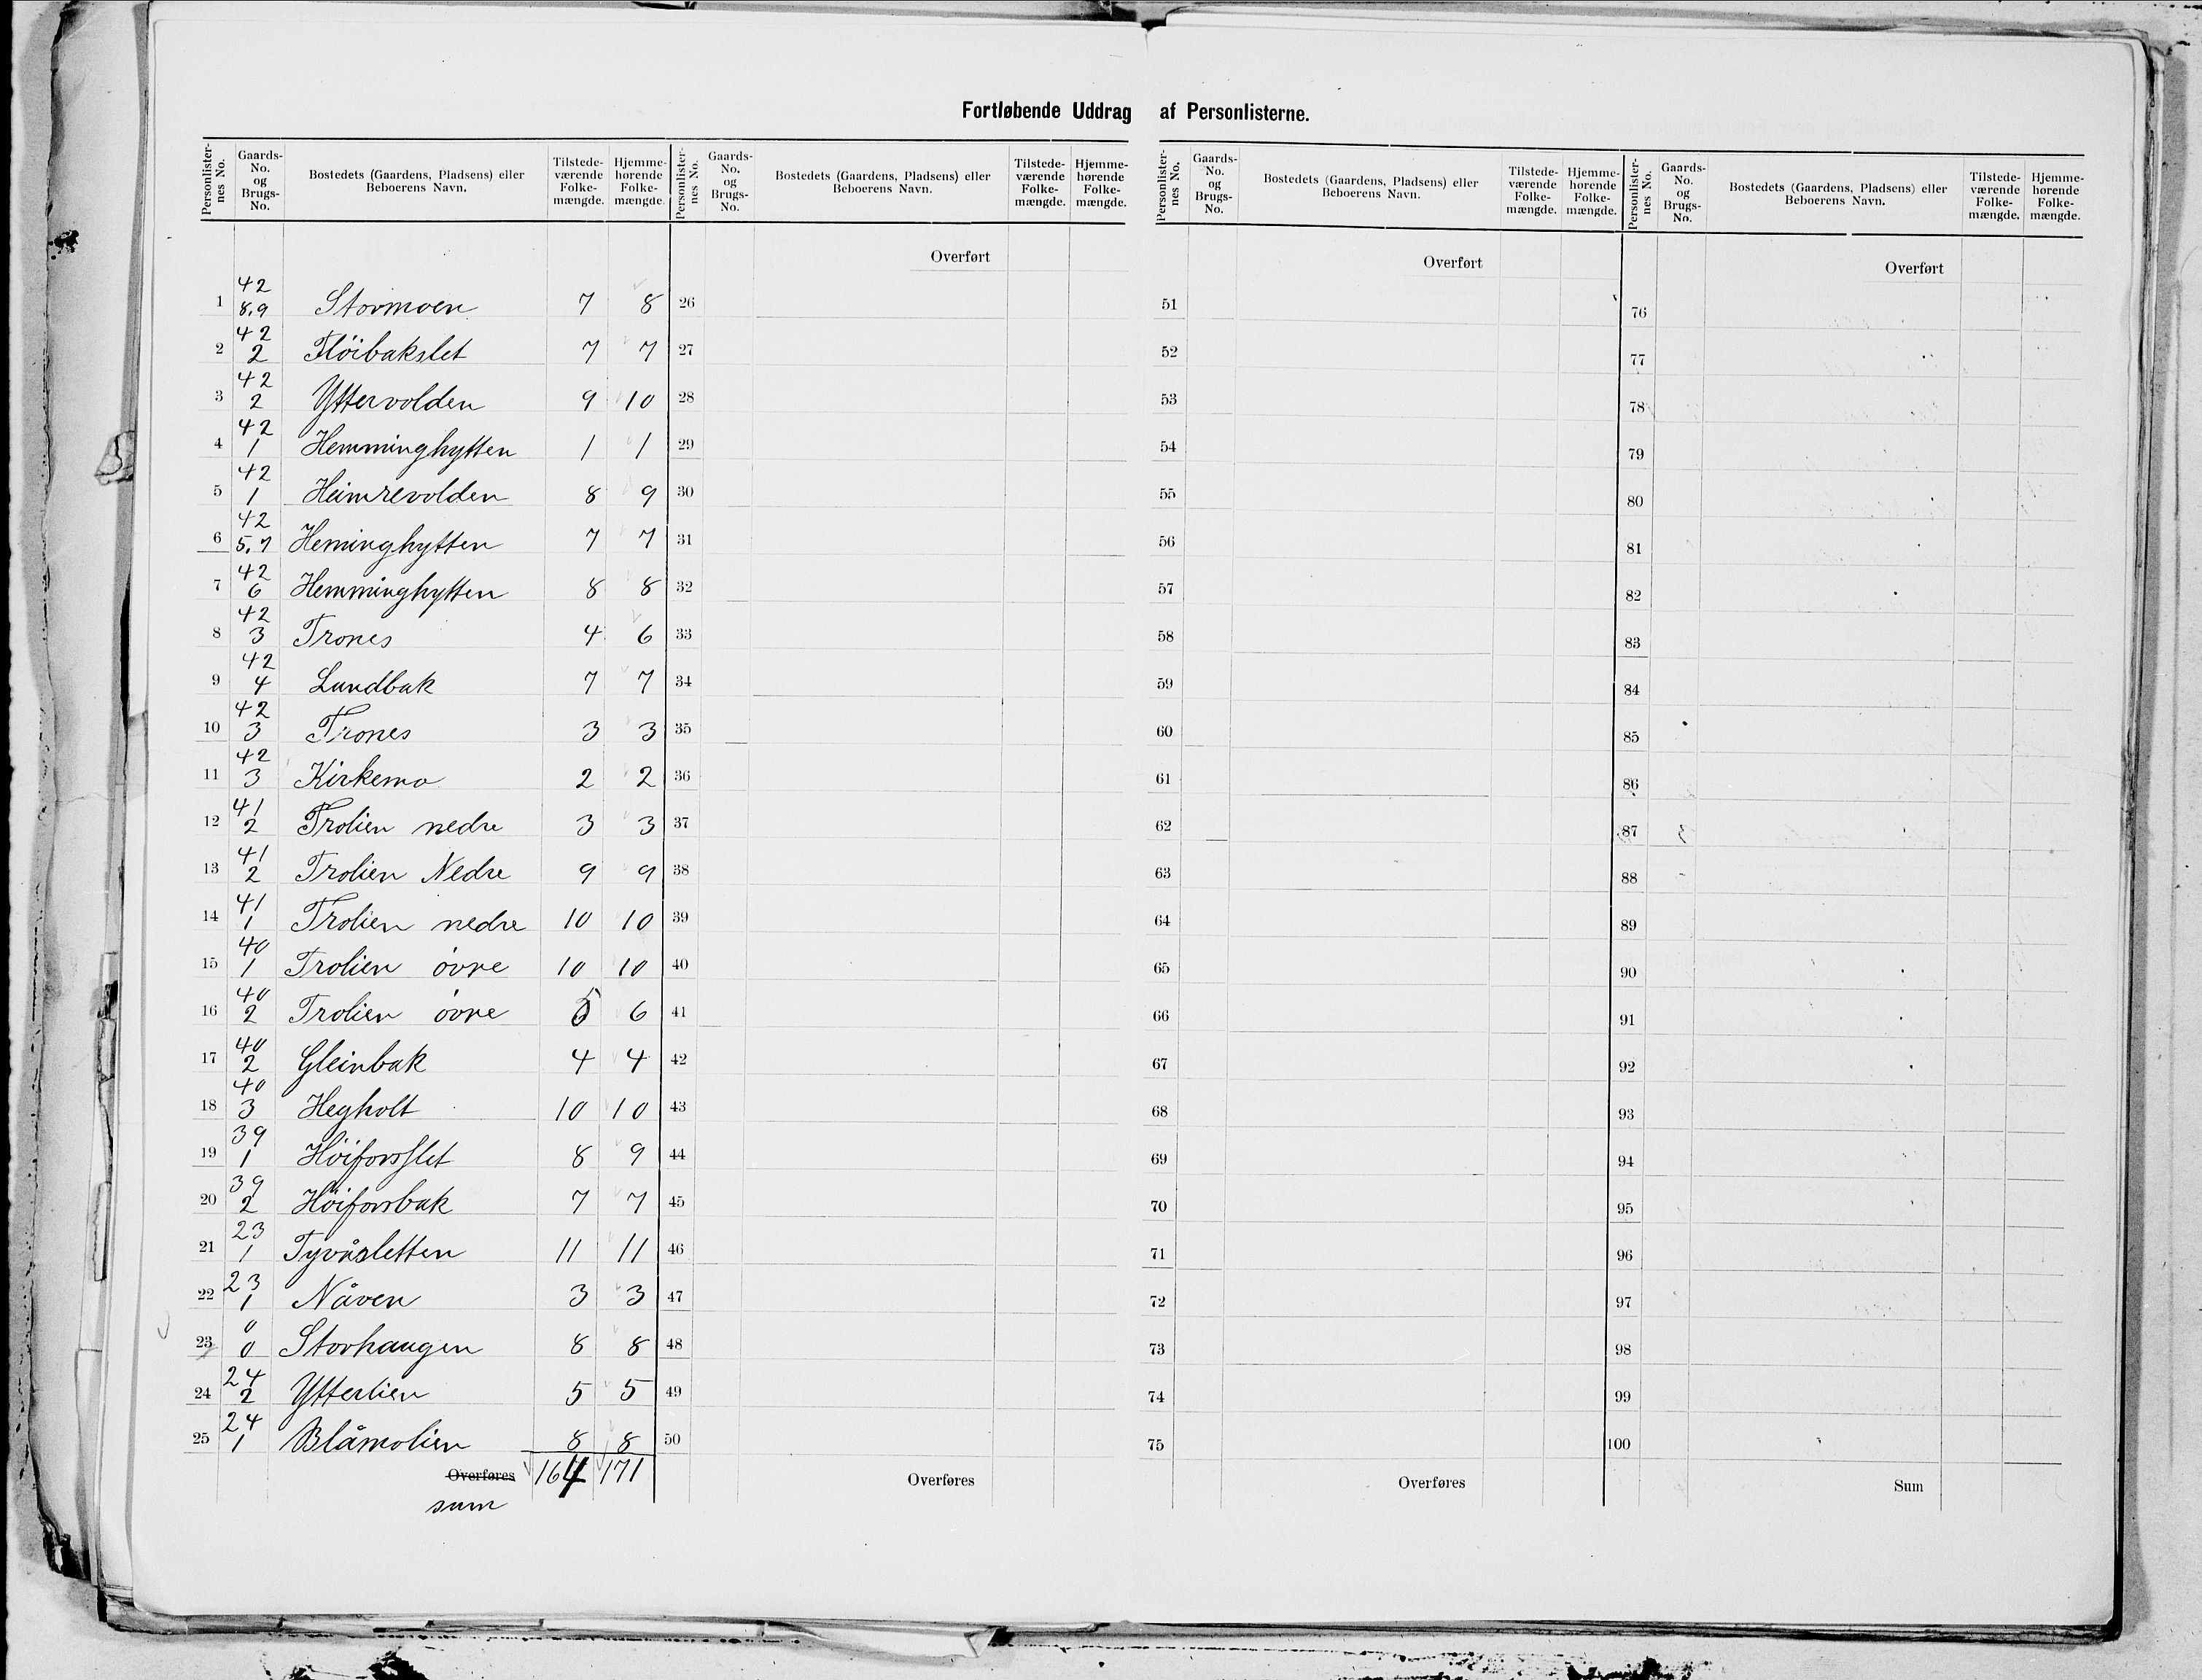 Fortløbende Uddrag af Personlisterne.
Personlister-nes No. | Gaards-No. og Brugs-No. | Bostedets (Gaardens, Pladsens) eller Beboerens Navn. | Tilstede-værende Folke-mængde. | Hjemme-hørende Folke-mængde. | Personlister-nes No. | Gaards-No. og Brugs-No. | Bostedets (Gaardens, Pladsens) eller Beboerens Navn. | Tilstede-værende Folke-mængde. | Hjemme-hørende Folke-mængde. | Personlister-nes No. | Gaards-No. og Brugs-No. | Bostedets (Gaardens, Pladsens) eller Beboerens Navn. | Tilstede-værende Folke-mængde. | Hjemme-hørende Folke-mængde. | Personlister-nes No. | Gaards-No. og Brugs-No. | Bostedets (Gaardens, Pladsens) eller Beboerens Navn. | Tilstede-værende Folke-mængde. | Hjemme-hørende Folke-mængde.
Overført Overført Overført
1 42 8,9 Stormoen 7 8 26 51 76
2 42 2 Fløibakslet 7 7 27 52 77
3 42 2 Yttervolden 9 10 28 53 78
4 42 1 Hemminghytten 1 1 29 54 79
5 42 1 Heimrevolden 8 9 30 55 80
6 42 5,7 Heminghytten 7 7 31 56 81
7 42 6 Hemminghytten 8 8 32 57 82
8 42 3 Trones 4 6 33 58 83
9 42 4 Lundbak 7 7 34 59 84
10 42 3 Trones 3 3 35 60 85
11 42 3 Kirkemo 2 2 36 61 86
12 41 2 Trolien nedre 3 3 37 62 87
13 41 2 Trolien Nedre 9 9 38 63 88
14 41 1 Trolien nedre 10 10 39 64 89
15 40 1 Trolien óvre 10 10 40 65 90
16 40 2 Trolien óvre 5 6 41 66 91
17 40 2 Gleinbak 4 4 42 67 92
18 40 3 Hegholt 10 10 43 68 93
19 39 1 Höiforsslet 8 9 44 69 94
20 39 2 Höiforsbak 7 7 45 70 95
21 23 1 Tyvåsletten 11 11 46 71 96
22 23 1 Nåven 3 3 47 72 97
23 0 0 Storhaugen 8 8 48 73 98
24 24 2 Ytterlien 5 5 49 74 99
25 24 1 Blåmolien 8 8 50 75 100
Overføres 164 171 Overføres Overføres Sum
sum